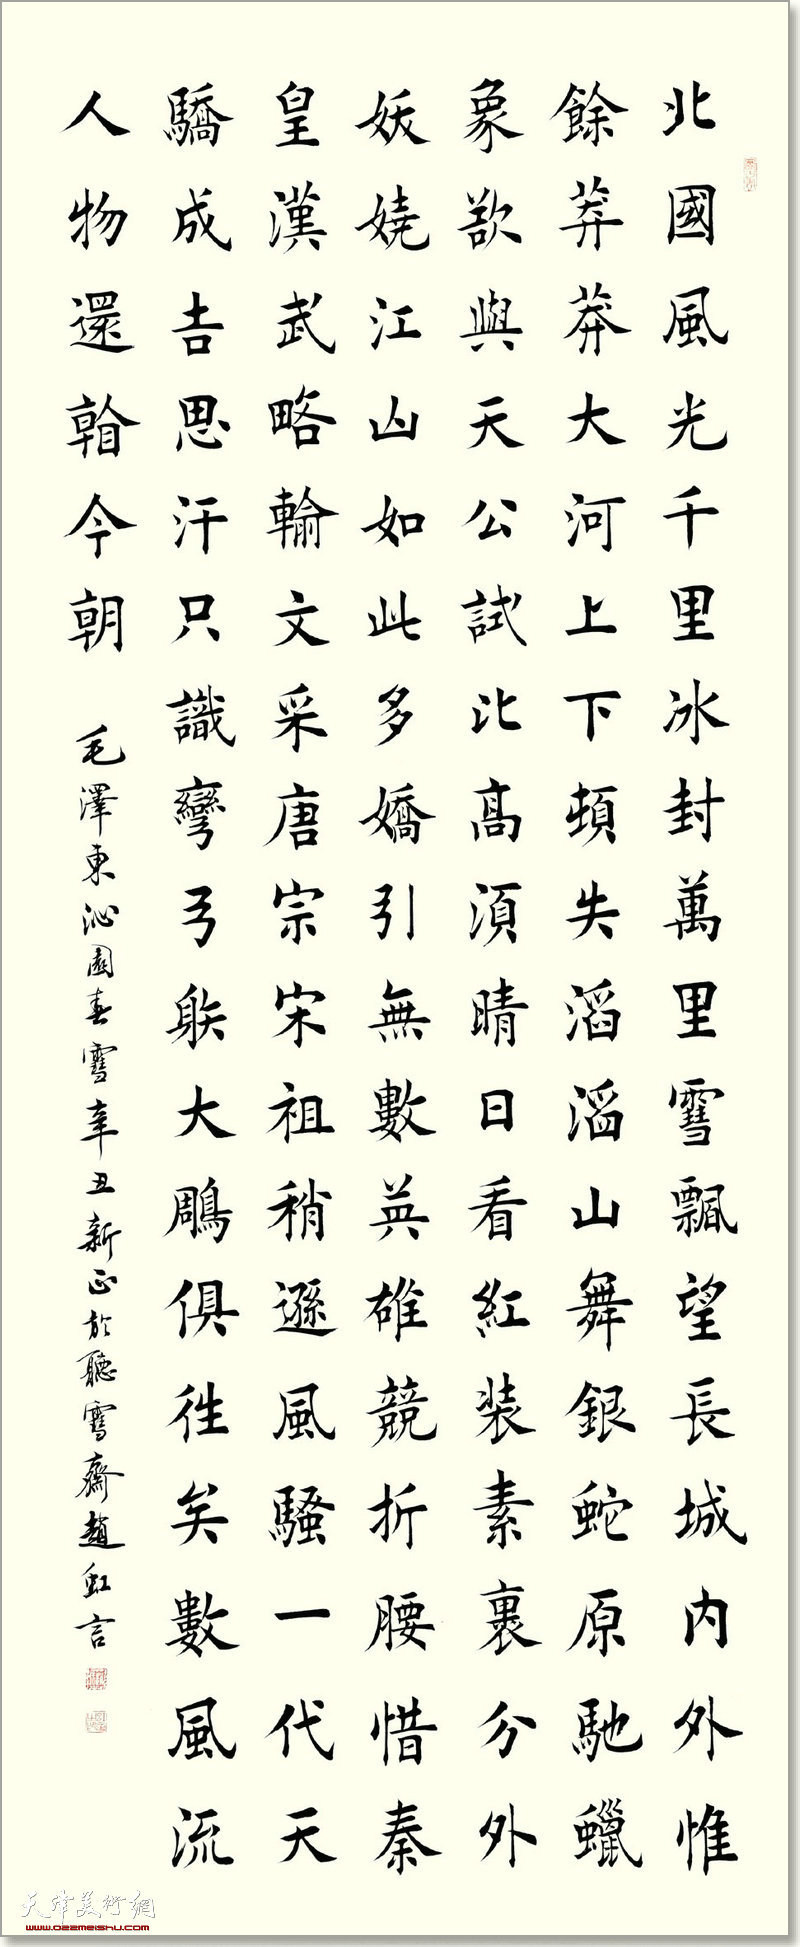 北國風光千里冰封萬里雪飄望長城内外惟
餘莽莽大河上下頓失滔滔山舞銀蛇原馳蠟
象欲與天公試比高須晴日看紅装素裹分外
妖嬈江山如此多嬌引無數英雄競折腰惜秦
皇漢武略輸文采唐宗宋祖稍遜風騷一代天
驕成吉思汗只識彎弓䠶大鵰俱往矣數風流
人物還看今朝
毛澤東沁園春雪辛丑新正於聽雪齋趙虹言
天津美術網
www.022meishu.com